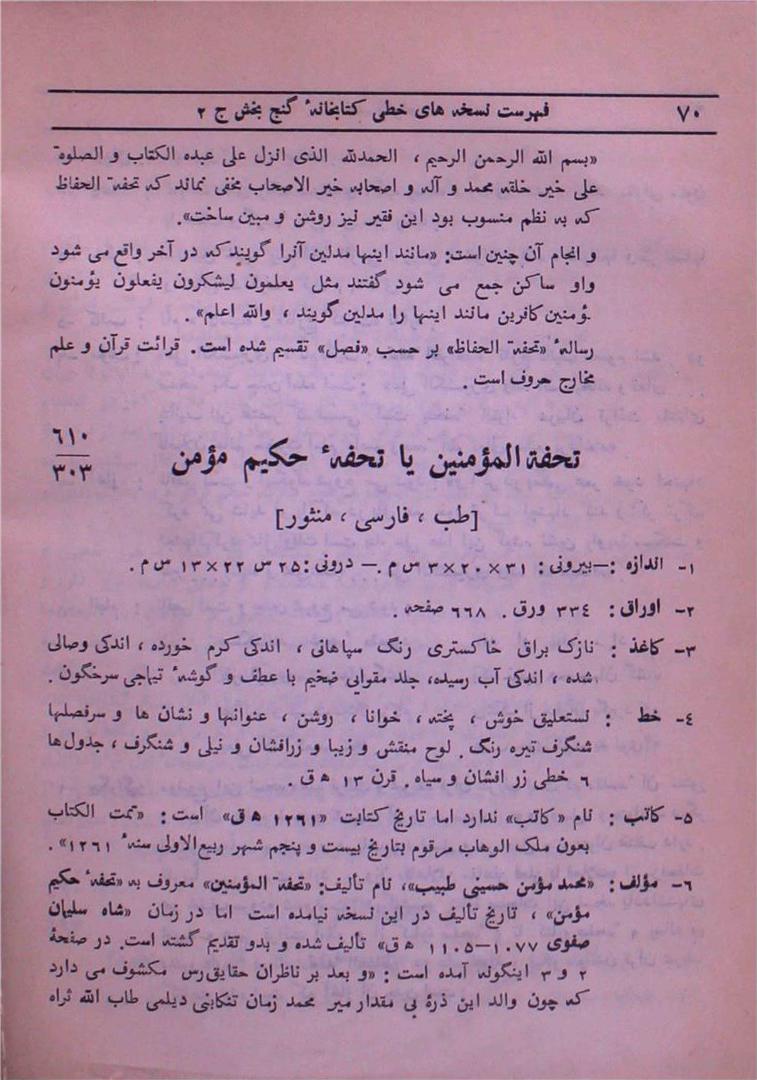 ۷۰ فهرست نسخه های خطی کتابخانهٔ گنج بخش ج ۲
«بسم الله الرحمن الرحیم ، الحمدلله الذی انزل علی عبده الکتاب و الصلوة
علی خیر خلقه محمد و آله و اصحابه خیر الاصحاب مخفی نماند که تحفة الحفاظ
که به نظم منسوب بود این فقیر نیز روشن و مبین ساخت».
و انجام آن چنین است: «مانند اینها مدلین آنرا گویند که در آخر واقع می شود
واو ساکن جمع می شود گفتند مثل یعلمون لیشکرون یفعلون یؤمنون
یؤمنین کافرین مانند اینها را مدلین گویند ، والله اعلم» .
رسالهٔ «تحفة الحفاظ» بر حسب «فصل» تقسیم شده است . قرائت قرآن و علم
مخارج حروف است .
٦١٠
٣٠٣
تحفة المؤمنین یا تحفهٔ حکیم مؤمن
[طب ، فارسی ، منثور]
۱- اندازه :—بیرونی : ۳۱×۲۰×۳ س م .— درونی : ۲۵ س ۲۲×۱۳ س م .
۲- اوراق : ۳۳٤ ورق . ٦٦۸ صفحه .
۳- کاغذ : نازک براق خاکستری رنگ سپاهانی ، اندکی کرم خورده ، اندکی وصالی
شده ، اندکی آب رسیده، جلد مقوایی ضخیم با عطف و گوشهٔ تیماجی سرخگون .
٤- خط : نستعلیق خوش ، پخته ، خوانا ، روشن ، عنوانها و نشان ها و سرفصلها
شنگرف تیره رنگ . لوح منقش و زیبا و زرافشان و نیلی و شنگرف ، جدول ها
٦ خطی زر افشان و سیاه . قرن ۱۳ ه ق .
۵- کاتب : نام «کاتب» ندارد اما تاریخ کتابت «۱۲٦۱ ه ق» است : «تمت الکتاب
بعون ملک الوهاب مرقوم بتاریخ بیست و پنجم شهر ربیع الاولی سنهٔ ۱۲٦۱» .
٦- مؤلف : «محمد مؤمن حسینی طبیب» ، نام تألیف : «تحفة المؤمنین» معروف به «تحفهٔ حکیم
مؤمن» ، تاریخ تألیف در این نسخه نیامده است اما در زمان «شاه سلیمان
صفوی ۱۰۷۷—۱۱۰۵ ه ق» تألیف شده و بدو تقدیم گشته است. در صفحهٔ
۲ و ۳ اینگونه آمده است : «و بعد بر ناظران حقایق رس مکشوف می دارد
که چون والد این ذرهٔ بی مقدار میر محمد زمان تنکابنی دیلمی طاب الله ثراه